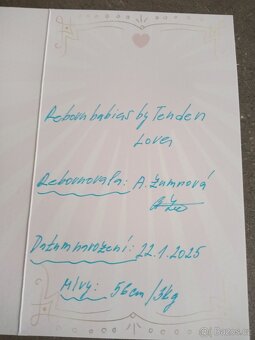 Reborn babies by Tender
Lover
Rebornovala: A. Zumnová
Datum narození: 22.1.2025
Mívy: 56cm/3kg